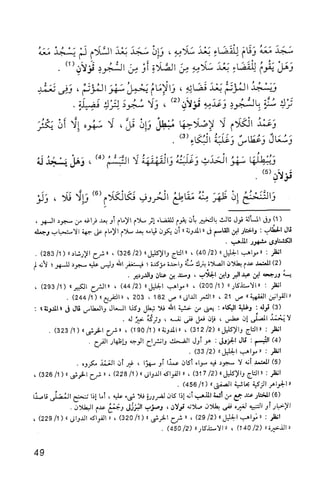 سَجَدَ مَعَهُ وَقَامَ لِلْقَضَاءِ بَعْدَ سَلَامِهِ ، وَإِنْ سَجَدَ بَعْدَ السَّلَامِ لَمْ يَسْجُدْ مَعَهُ
وَهَلْ يَقُومُ لِلْقَضَاءِ بَعْدَ سَلَامِهِ مِنَ الصَّلَاةِ أَوْ مِنَ السُّجُودِ قَوْلَانِ (1) .
وَيَسْجُدُ الْمُؤْتَمُّ بَعْدَ قَضَائِهِ ، وَالْإِمَامُ يَحْمِلُ سَهْوَ الْمُؤْتَمِّ ، وَفِي تَعَمُّدِ
تَرْكِ سُنَّةٍ بِالسُّجُودِ وَعَدَمِهِ قَوْلَانِ (2) ، وَلَا سُجُودَ لِتَرْكِ فَضِيلَةٍ .
وَعَمْدُ الْكَلَامِ لَا لِإِصْلَاحِهَا مُبْطِلٌ وَإِنْ قَلَّ ، لَا سَهْوُهُ إِلَّا أَنْ يَكْثُرَ
وَسُعَالٌ وَعُطَاسٌ وَغَلَبَةُ الْبُكَاءِ (3) .
وَيُبْطِلُهَا سَهْوُ الْحَدَثِ وَغَلَبَتُهُ وَالْقَهْقَهَةُ لَا التَّبَسُّمُ (4) ، وَهَلْ يَسْجُدُ لَهُ
قَوْلَانِ (5) .
وَالتَّنَحْنُحُ إِنْ ظَهَرَ مِنْهُ مَقَاطِعُ الْحُرُوفِ فَكَالْكَلَامِ (6) وَإِلَّا فَلَا ، وَلَوْ
(1) وفي المسألة قول ثالث بالتخيير بأن يقوم للقضاء إثر سلام الإمام أو بعد فراغه من سجود السهو ،
قال الحطاب : واختار ابن القاسم في « المدونة » أن يكون قيامه بعد سلام الإمام على جهة الاستحباب وجعله
الكشناوي مشهور المذهب .
انظر : « مواهب الجليل » (2/ 40) ، « التاج والإكليل » (2/ 326) ، « شرح الإرشاد » (1/ 283) .
(2) المعتمد عدم بطلان الصلاة بترك سُنَّة واحدة مؤكدة ؛ فيستغفر الله وليس عليه سجود للسهو ؛ لأنه لم
يسهُ ورجحه ابن عبد البر وابن الجلَّاب ، وسند بن عنان والدردير .
انظر : « الاستذكار » (1/ 200) ، « مواهب الجليل » (2/ 44) ، « الشرح الكبير » (1/ 293) ،
« القوانين الفقهية » ص 21 ، « الثمر الداني » ص 162 ، 203 ، « التفريع » (1/ 244) .
(3) قوله : وغلبة البكاء : يعني من خشية الله فلا تبطل وكذا السعال والعطاس قال في « المدونة » :
لا يَحْمَدُ المُصَلِّي إن عطس ، فإن فعل ففي نفسه ، وتركُهُ خيرٌ له .
انظر : « التاج والإكليل » (2/ 312) ، « المدونة » (1/ 190) ، « شرح الخرشي » (1/ 323) .
(4) التبسم : قال الجزولي : هو أول الضحك وانشراح الوجه وإظهار الفرح .
انظر : « مواهب الجليل » (2/ 33) .
(5) المعتمد أنه لا سجود فيه سواء أكان عمدًا أو سهوًا ، غير أن التعمّد مكروه .
انظر : « التاج والإكليل » (2/ 317) ، « الفواكه الدواني » (1/ 228) ، « شرح الخرشي » (1/ 326) ،
« الجواهر الزكية بحاشية الصفتي » (1/ 456) .
(6) المختار عند جمع من أئمة المذهب أنه إذا كان لضرورة فلا شيء عليه ، أما إذا تنحنح المُصَلِّي قاصدًا
الإخبار أو التنبيه لغيره ففي بطلان صلاته قولان ، وصوَّب البُرْزُلي وجَمْعٌ عدم البطلان .
انظر : « مواهب الجليل » (2/ 29) ، « شرح الخرشي » (1/ 320) ، « الفواكه الدواني » (1/ 229) ،
« الذخيرة » (2/ 140) ، « الاستذكار » (2/ 450) .
49